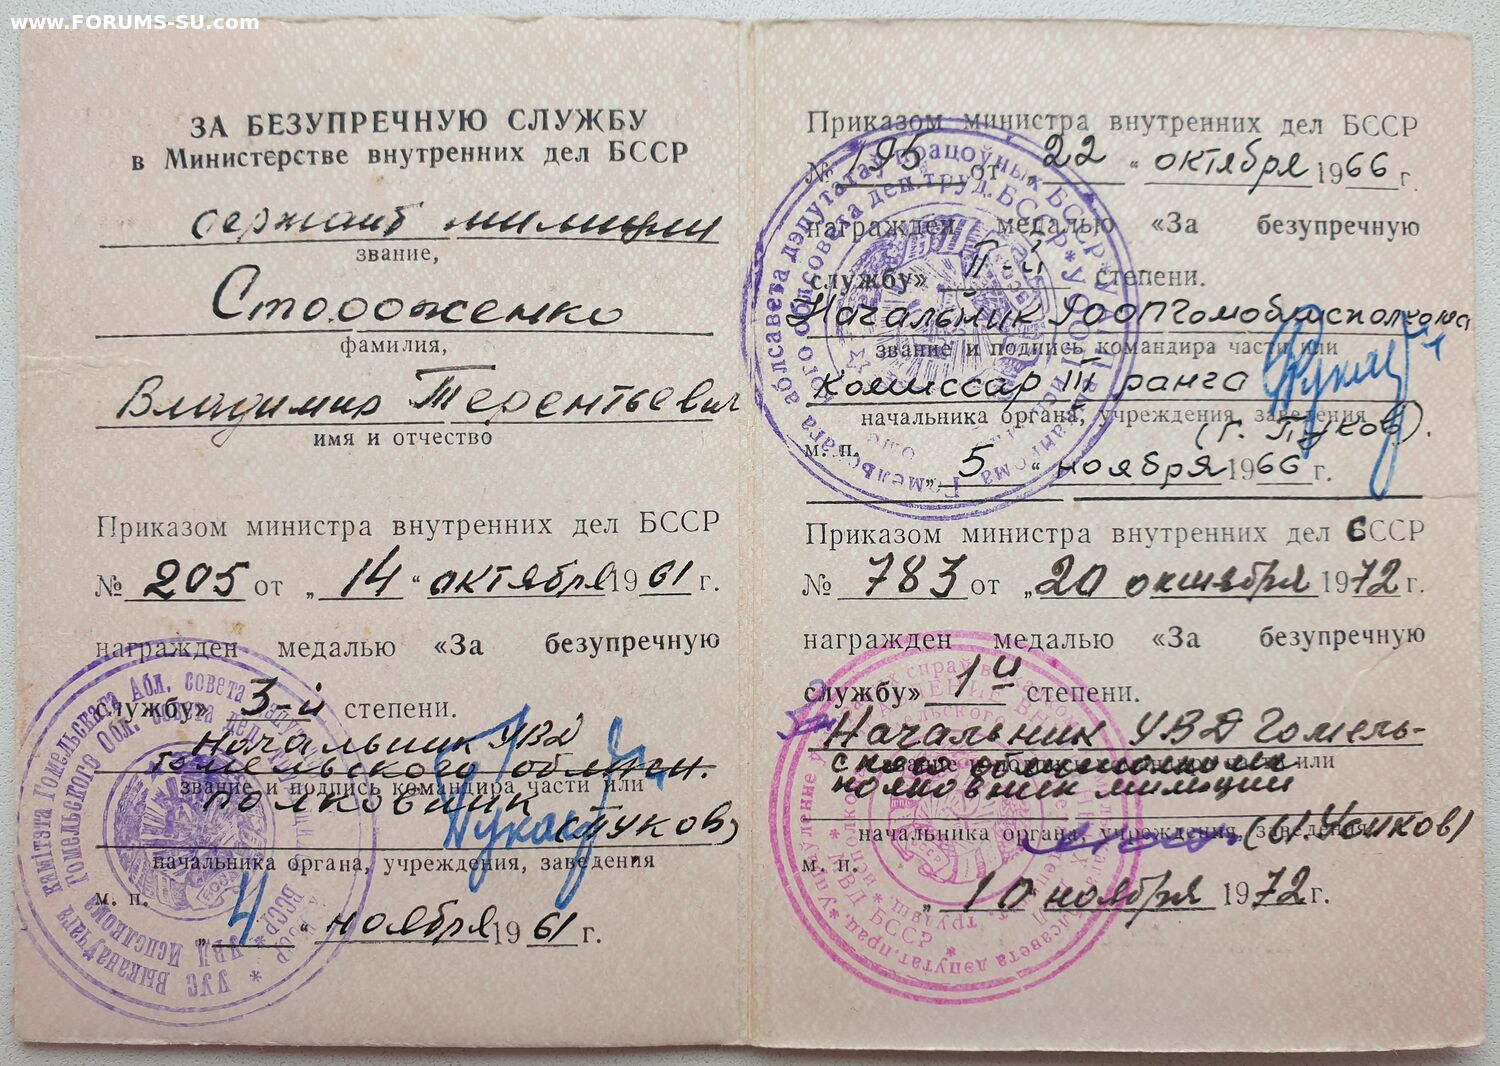 www.FORUMS-SU.com
ЗА БЕЗУПРЕЧНУЮ СЛУЖБУ
в Министерстве внутренних дел БССР
сержант милиции
звание,
Стороженко
фамилия,
Владимир Терентьевич
имя и отчество
Приказом министра внутренних дел БССР
№ 205 от „14" октября 1961 г.
награжден медалью «За безупречную
службу» 3-й степени.
Начальник УВД
Гомельского облисп.
звание и подпись командира части или
полковник (Пуков)
начальника органа, учреждения, заведения
м. п.
„4" ноября 1961 г.
Приказом министра внутренних дел БССР
№ 195 от „22" октября 1966 г.
награжден медалью «За безупречную
службу» II-й степени.
Начальник УООП Гомоблисполкома
звание и подпись командира части или
комиссар III ранга
начальника органа, учреждения, заведения
(г. Пуков).
м. п.
„5" ноября 1966 г.
Приказом министра внутренних дел БССР
№ 783 от „20 октября 1972 г.
награжден медалью «За безупречную
службу» 1й степени.
Начальник УВД Гомель-
ского облисполкома
звание и подпись командира части или
полковник милиции
начальника органа, учреждения, заведения
м. п.
„10" ноября 1972 г.